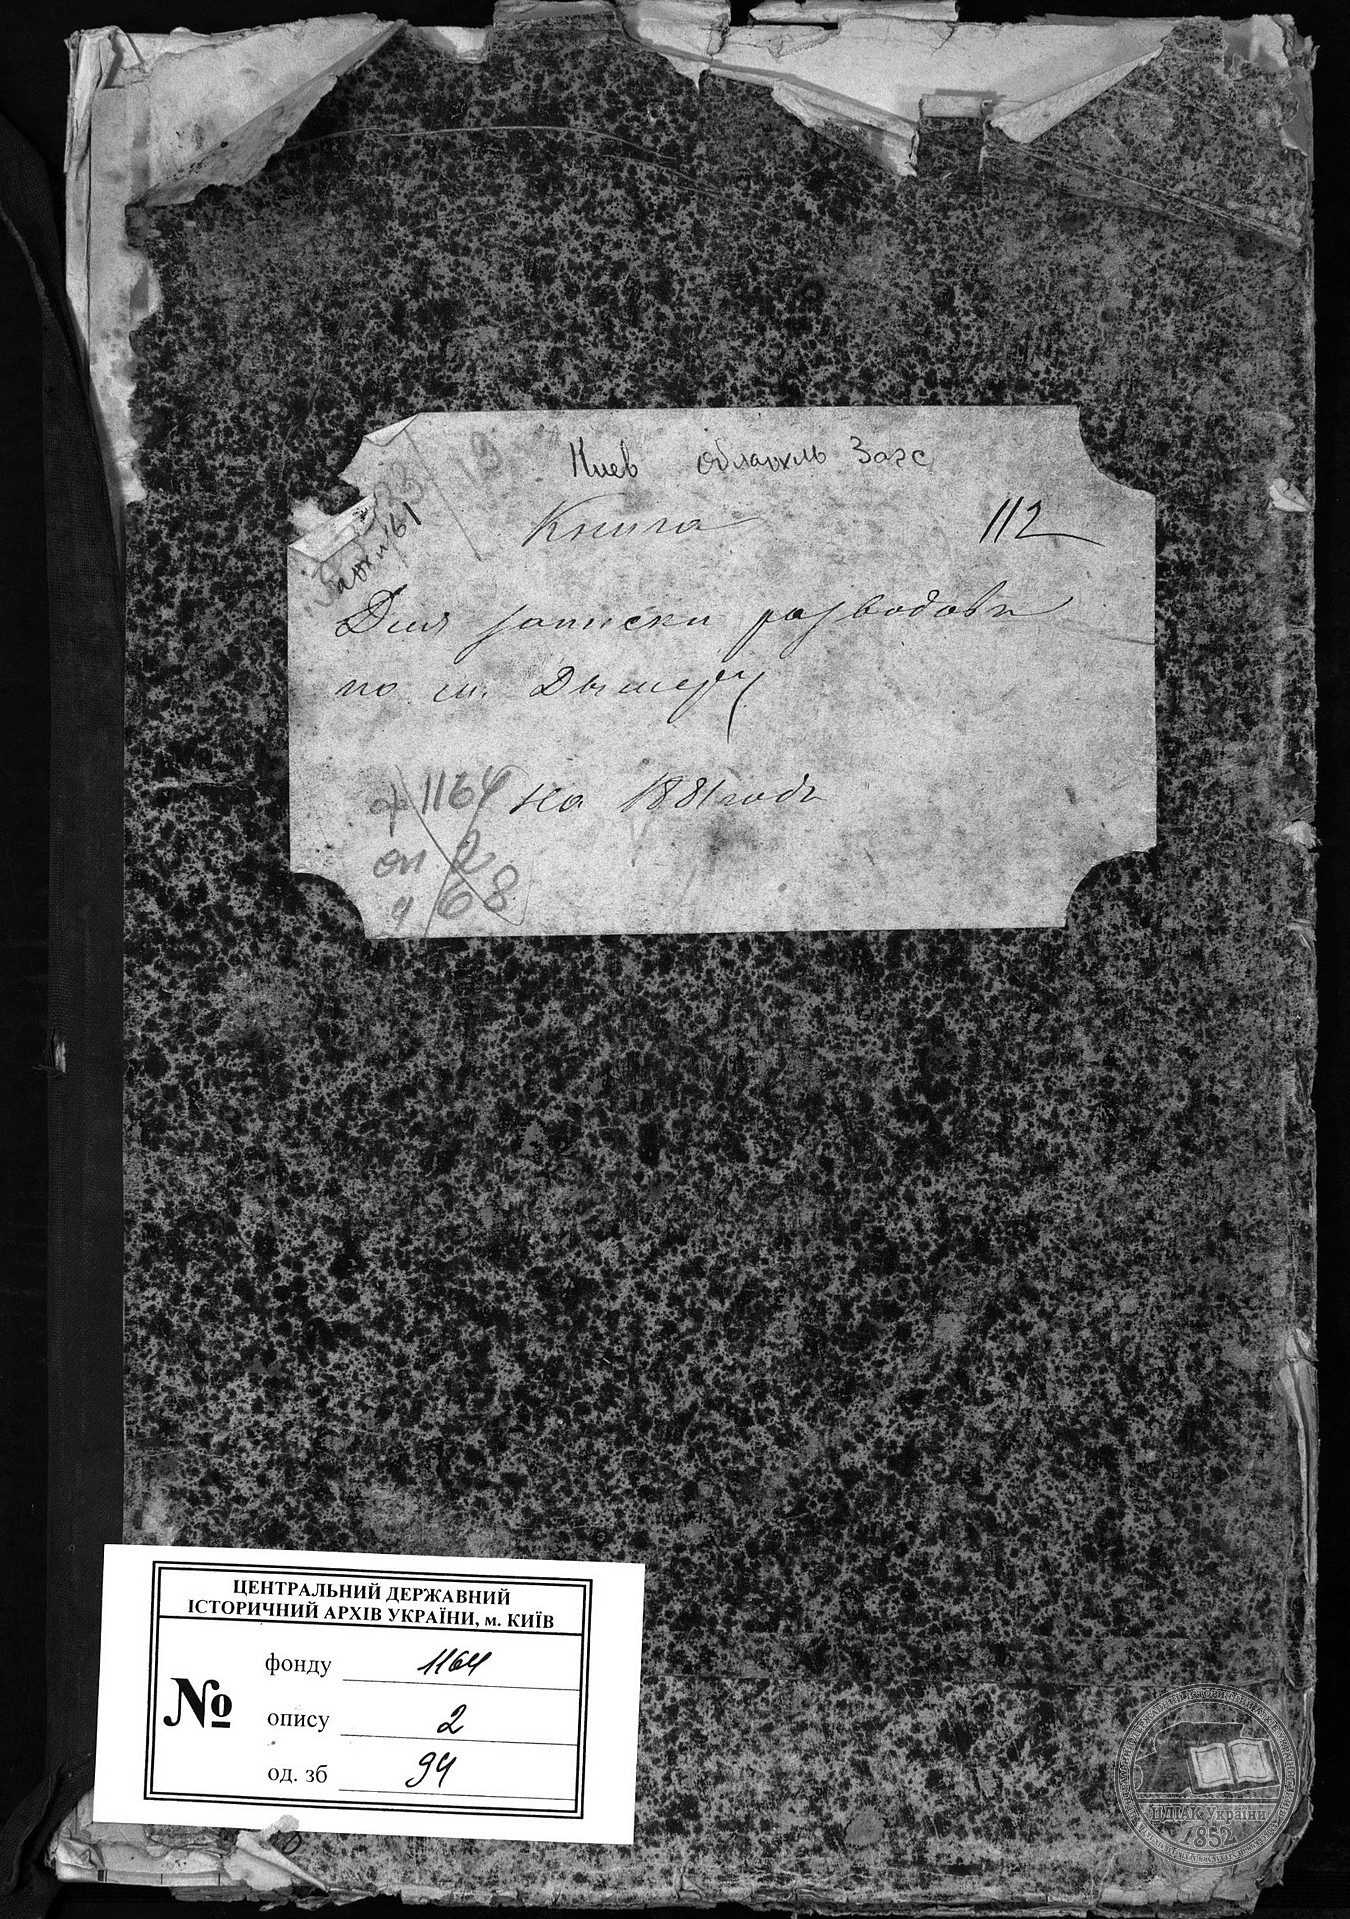 19
Киев областль Загс
Книга
112
Для записки разводовъ
по м. Дымеру
на 1881 годъ
ф 1164
оп 2
68
ЦЕНТРАЛЬНИЙ ДЕРЖАВНИЙ
ІСТОРИЧНИЙ АРХІВ УКРАЇНИ, м. КИЇВ
№
фонду 1164
опису 2
од. зб 94
ЦДІАК України
1852